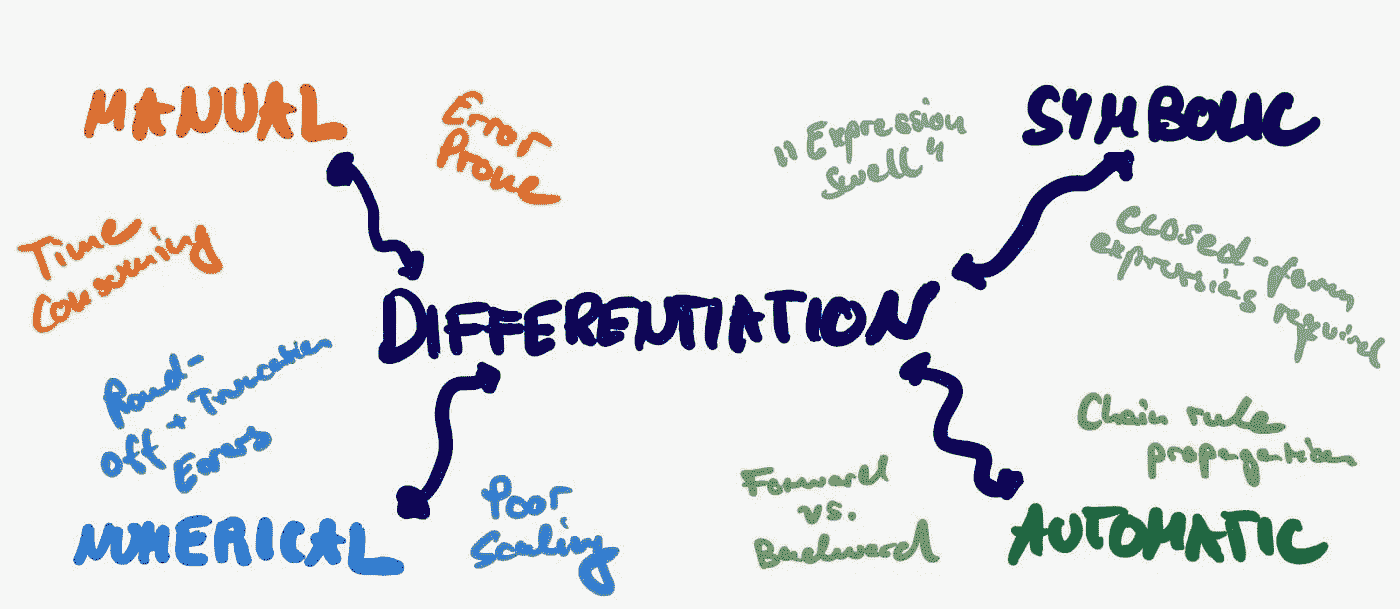 MANUAL
Error
Prone
Time
Consuming
"Expression
Swell"
SYMBOLIC
Closed-form
expressions required
DIFFERENTIATION
Round-
off + Truncation
Errors
NUMERICAL
Poor
Scaling
Forward
vs.
Backward
Chain rule
propagation
AUTOMATIC